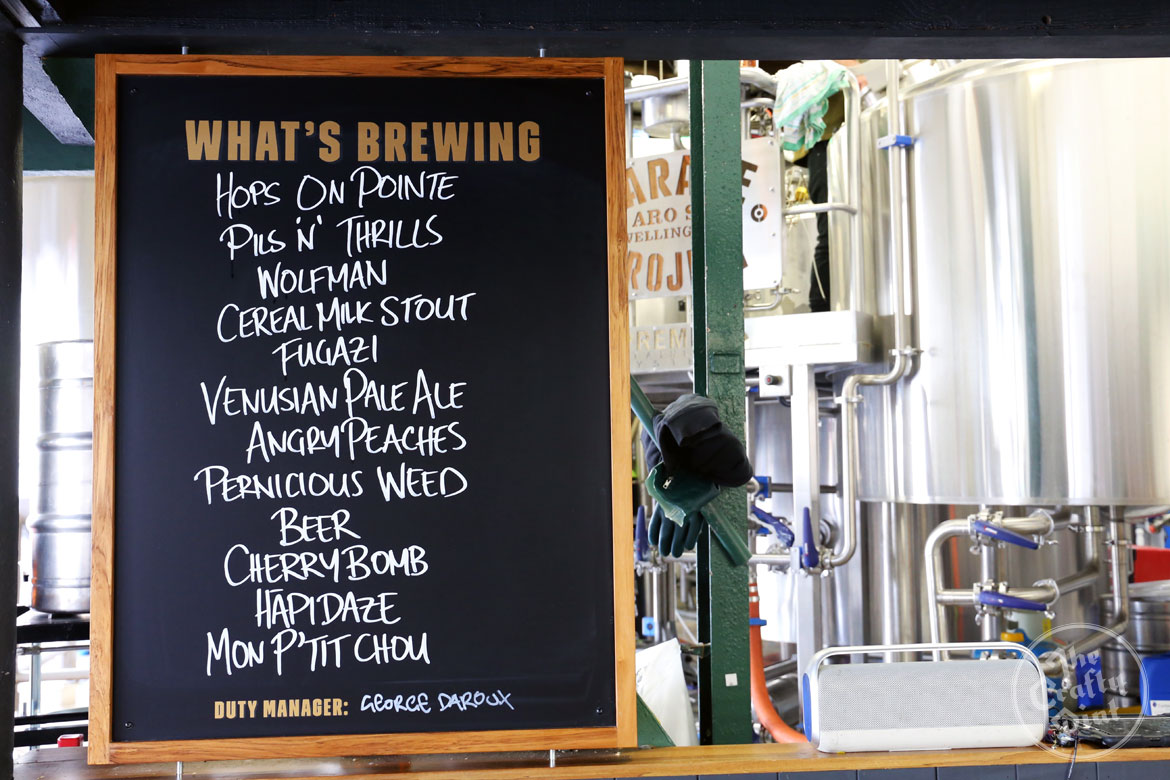 WHAT'S BREWING
HOPS ON POINTE
PILS 'N' THRILLS
WOLFMAN
CEREAL MILK STOUT
FUGAZI
VENUSIAN PALE ALE
ANGRY PEACHES
PERNICIOUS WEED
BEER
CHERRY BOMB
HĀPI DAZE
MON P'TIT CHOU
DUTY MANAGER: GEORGE DAROUX
ARA
E
ARO S
ELLING
ROJ
REM
The
Crafty